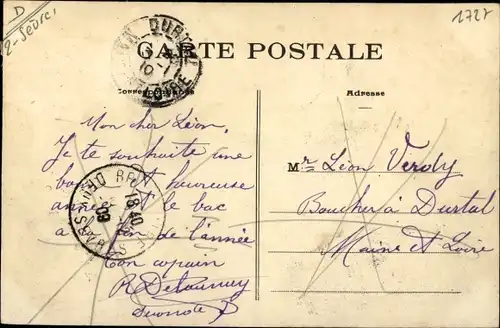 D
2-Sèvres
1727
CARTE POSTALE
Correspondance
Adresse
Mon cher Léon,
Je te souhaite une
bonne et heureuse
année et le bac
à la fin de l'année
Ton copain
R Delaunay
Mr Léon Verdy
Boucher à Durtal
Maine et Loire
DURTAL
8 40
09